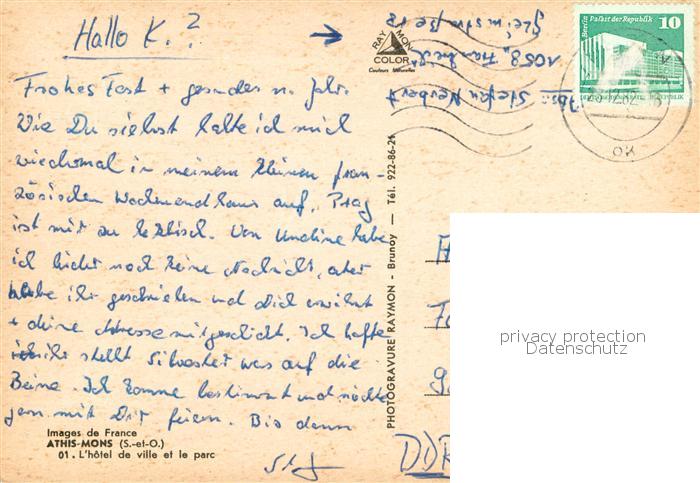 Hallo K.?
Frohes Fest + gesundes n. Jahr.
Wie Du siehst halte ich mich
wiedermal in meinem kleinen fran-
zösischen Wochenendhaus auf. Prag
ist mir zu hektisch. Von Undine habe
ich leider noch keine Nachricht, aber
habe ihr geschrieben und Dich erwähnt
+ deine Adresse mitgeschickt. Ich hoffe
ihr stellt Silvester was auf die
Beine. Ich komme bestimmt und möchte
gern mit Dir feiern. Bis dann
Images de France
ATHIS-MONS (S.-et-O.)
01. L'hôtel de ville et le parc
PHOTOGRAVURE RAYMON - Brunoy — Tél. 922-86-21
RAY MON
COLOR
Couleurs Naturelles
Abs. Stefan Neubert
1058
Berlin Palast der Republik
10
12.82
DDR
privacy protection
Datenschutz